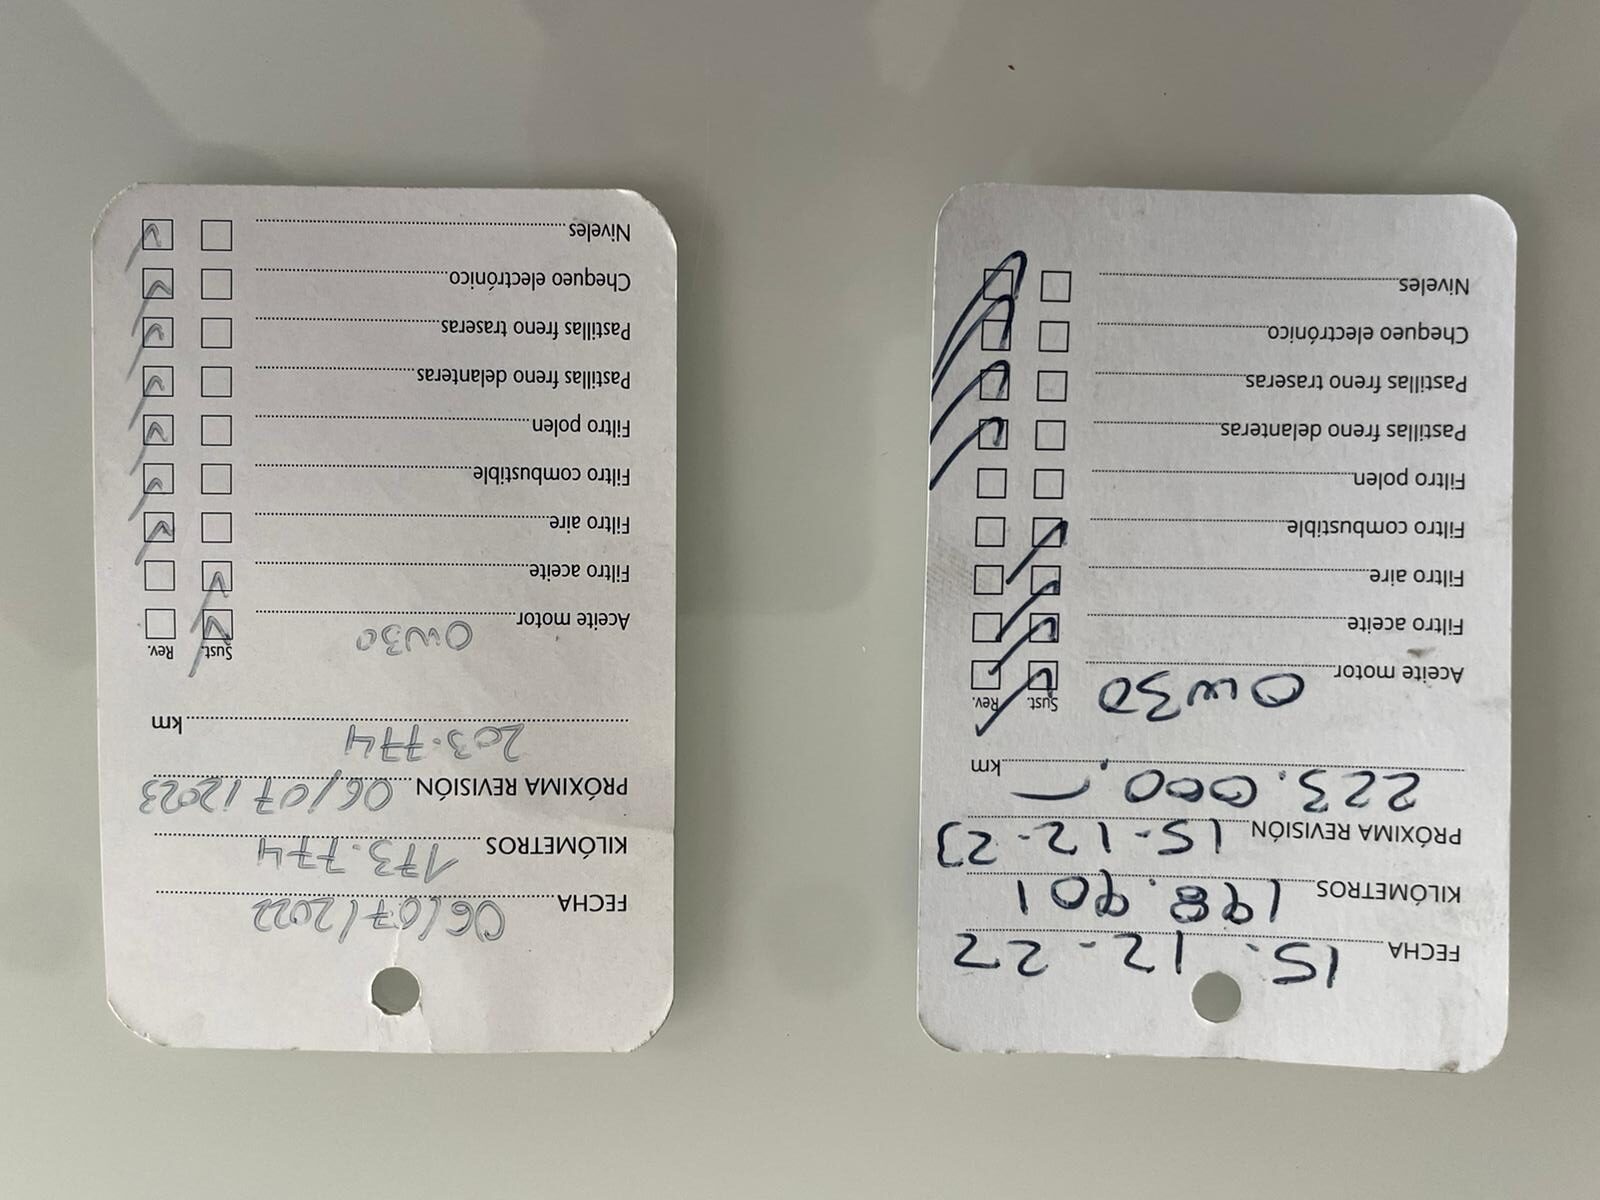 FECHA 15-12-22
KILÓMETROS 198.901
PRÓXIMA REVISIÓN 15-12-23
223.000,- km
Sust. Rev.
Aceite motor 0W30
Filtro aceite
Filtro aire
Filtro combustible
Filtro polen
Pastillas freno delanteras
Pastillas freno traseras
Chequeo electrónico
Niveles
FECHA 06/07/2022
KILÓMETROS 173.774
PRÓXIMA REVISIÓN 06/07/2023
203.774 km
Sust. Rev.
Aceite motor 0W30
Filtro aceite
Filtro aire
Filtro combustible
Filtro polen
Pastillas freno delanteras
Pastillas freno traseras
Chequeo electrónico
Niveles